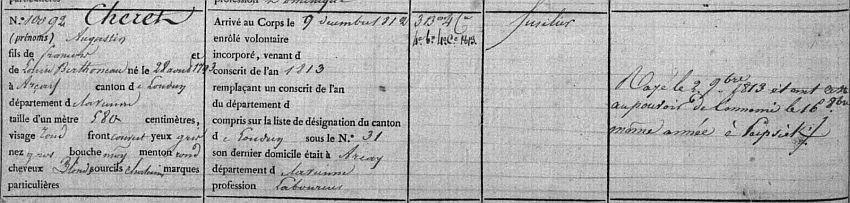 particulières
N.º 10092 Cheret
(prénoms) Augustin
fils de françois et
de Louise Berthomeau né le 28 août 1793
à Arçay canton de Loudun
département de la Vienne
taille d'un mètre 580 centimètres,
visage rond front couvert yeux gris
nez gros bouche moy menton rond
cheveux Blonds sourcils chatains marques
particulières
profession
Arrivé au Corps le 9 decembre 1812
enrôlé volontaire
incorporé, venant d
conscrit de l'an 1813
remplaçant un conscrit de l'an
du département d
compris sur la liste de désignation du canton
de Loudun sous le N.º 31
son dernier domicile était à Arçay
département de la Vienne
profession Laboureur
3 Bon 4 Cie
4e Bn 4e Cie 1813.
fusilier
Rayé le 2 9bre 1813 étant resté
au pouvoir de l'ennemi le 16 8bre
même année à Leipsick